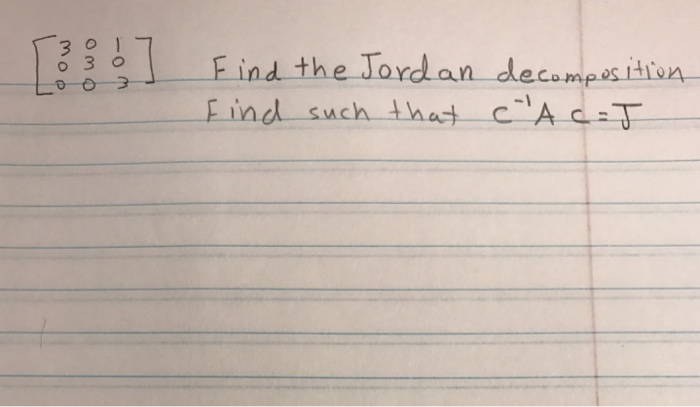 [3 0 1
0 3 0
0 0 3]
Find the Jordan decomposition
Find such that C⁻¹A C = J